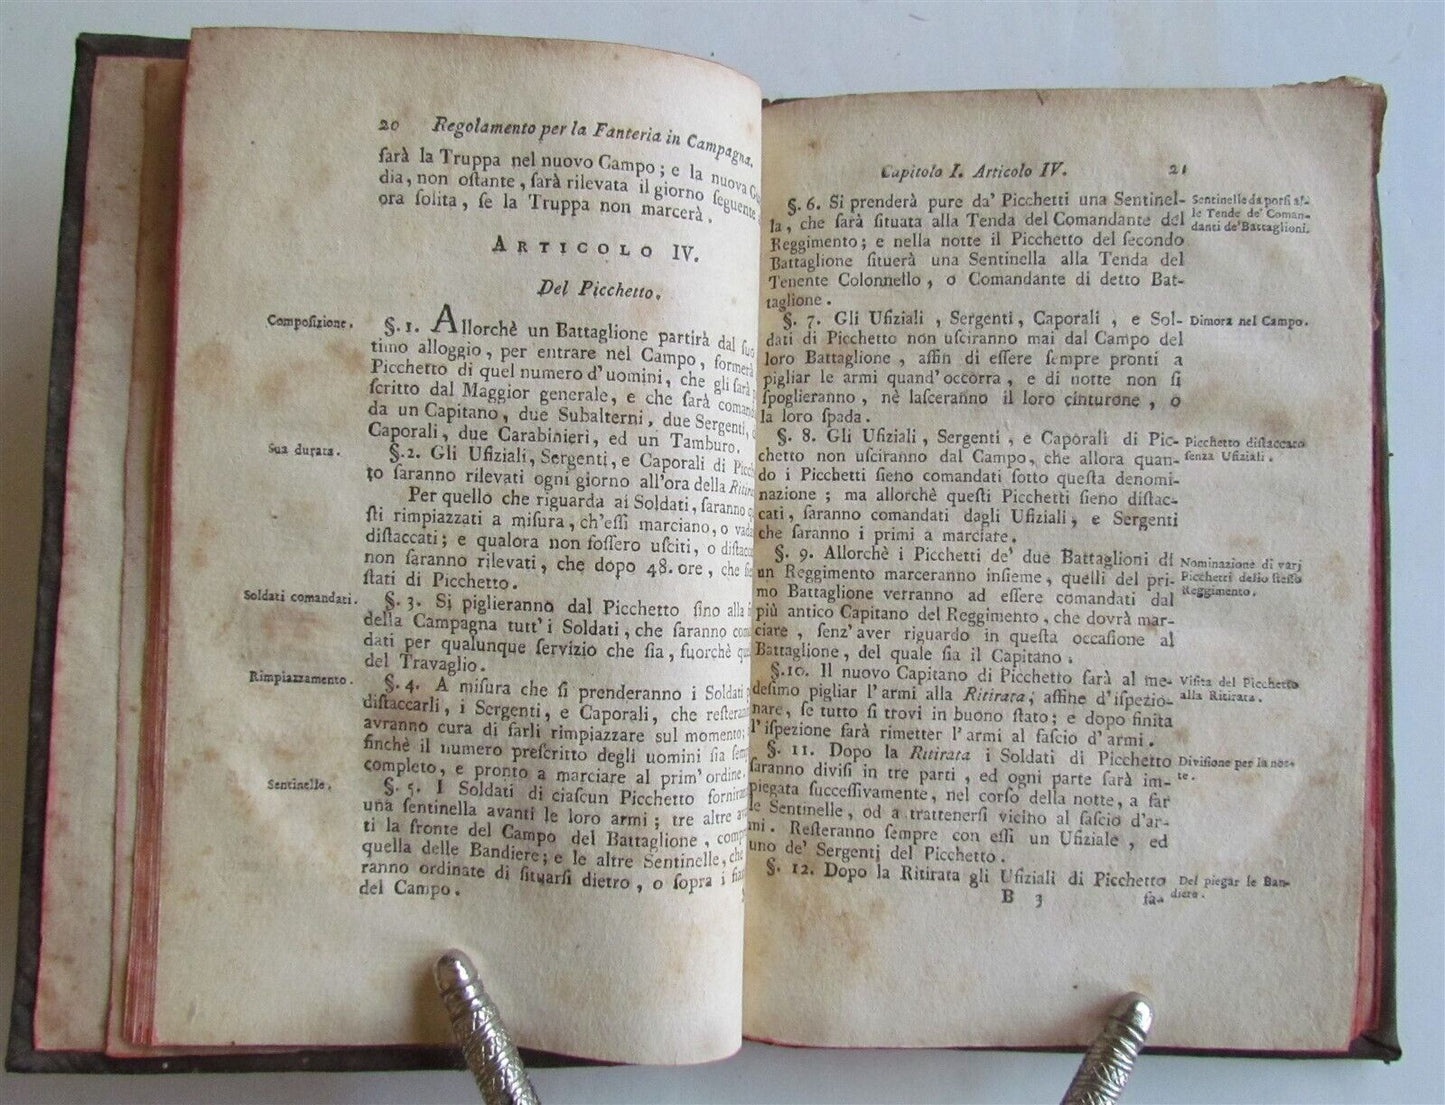 20 Regolamento per la Fanteria in Campagna.
ſarà la Truppa nel nuovo Campo; e la nuova
dia, non oſtante, ſarà rilevata il giorno ſeguente
ora ſolita, ſe la Truppa non marcerà.
ARTICOLO IV.
Del Picchetto.
Compoſizione.
§. 1. Allorchè un Battaglione partirà dal ſuo
timo alloggio, per entrare nel Campo, formerà
Picchetto di quel numero d'uomini, che gli ſarà
ſcritto dal Maggior generale, e che ſarà
da un Capitano, due Subalterni, due Sergenti,
Caporali, due Carabinieri, ed un Tamburo.
Sua durata.
§. 2. Gli Ufiziali, Sergenti, e Caporali di
to ſaranno rilevati ogni giorno all'ora della
Per quello che riguarda ai Soldati, ſaranno
ſti rimpiazzati a miſura, ch'eſſi marciano, o
diſtaccati; e qualora non foſſero uſciti, o
non ſaranno rilevati, che dopo 48. ore, che
ſtati di Picchetto.
Soldati comandati.
§. 3. Si piglieranno dal Picchetto fino alla
della Campagna tutt' i Soldati, che ſaranno
dati per qualunque ſervizio che ſia, fuorchè
del Travaglio.
Rimpiazzamento.
§. 4. A miſura che ſi prenderanno i Soldati
diſtaccarli, i Sergenti, e Caporali, che
avranno cura di farli rimpiazzare sul momento;
finchè il numero preſcritto degli uomini ſia
completo, e pronto a marciare al prim'ordine.
Sentinelle.
§. 5. I Soldati di ciaſcun Picchetto
una ſentinella avanti le loro armi; tre altre
ti la fronte del Campo del Battaglione,
quella delle Bandiere; e le altre Sentinelle, che
ranno ordinate di ſituarſi dietro, o ſopra i
del Campo.
Capitolo I. Articolo IV. 21
§. 6. Si prenderà pure da' Picchetti una Sentinel-
la, che ſarà ſituata alla Tenda del Comandante del
Reggimento; e nella notte il Picchetto del ſecondo
Battaglione ſituerà una Sentinella alla Tenda del
Tenente Colonnello, o Comandante di detto Bat-
taglione.
Sentinelle da porſi al-
le Tende de' Coman-
danti de' Battaglioni.
§. 7. Gli Ufiziali, Sergenti, Caporali, e Sol-
dati di Picchetto non uſciranno mai dal Campo del
loro Battaglione, affin di eſſere ſempre pronti a
pigliar le armi quand' occorra, e di notte non ſi
ſpoglieranno, nè laſceranno il loro cinturone, o
la loro ſpada.
Dimora nel Campo.
§. 8. Gli Ufiziali, Sergenti, e Caporali di Pic-
chetto non uſciranno dal Campo, che allora quan-
do i Picchetti ſieno comandati ſotto queſta denomi-
nazione; ma allorchè queſti Picchetti ſieno diſtac-
cati, ſaranno comandati dagli Ufiziali, e Sergenti
che ſaranno i primi a marciare.
Picchetto diſtaccato
ſenza Ufiziali.
§. 9. Allorchè i Picchetti de' due Battaglioni di
un Reggimento marceranno inſieme, quelli del pri-
mo Battaglione verranno ad eſſere comandati dal
più antico Capitano del Reggimento, che dovrà mar-
ciare, ſenz'aver riguardo in queſta occaſione al
Battaglione, del quale ſia il Capitano.
Nominazione di varj
Picchetti dello ſteſſo
Reggimento.
§. 10. Il nuovo Capitano di Picchetto farà al me-
deſimo pigliar l'armi alla Ritirata, affine d'iſpezio-
nare, ſe tutto ſi trovi in buono ſtato; e dopo finita
l'iſpezione farà rimetter l'armi al faſcio d'armi.
Viſita del Picchetto
alla Ritirata.
§. 11. Dopo la Ritirata i Soldati di Picchetto
ſaranno diviſi in tre parti, ed ogni parte ſarà im-
piegata ſucceſſivamente, nel corſo della notte, a far
le Sentinelle, od a trattenerſi vicino al faſcio d'ar-
mi. Reſteranno ſempre con eſſi un Ufiziale, ed
uno de' Sergenti del Picchetto.
Diviſione per la not-
te.
§. 12. Dopo la Ritirata gli Ufiziali di Picchetto
Del piegar le Ban-
diere.
B 3 fa-